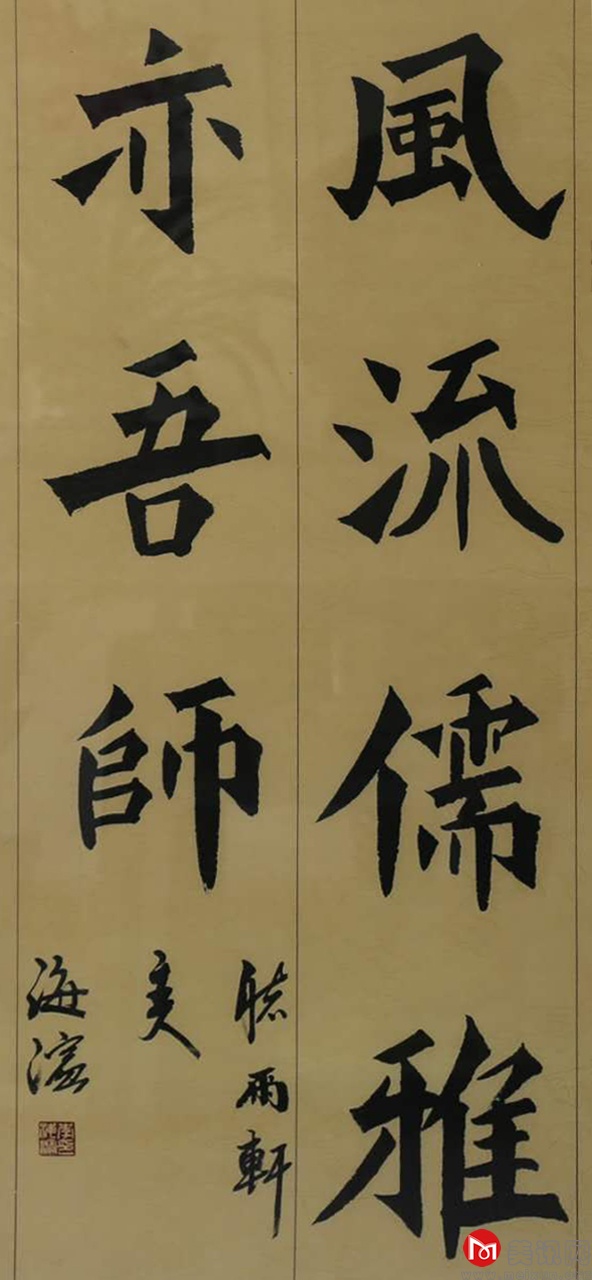 風流儒雅
亦吾師
聽雨軒
海